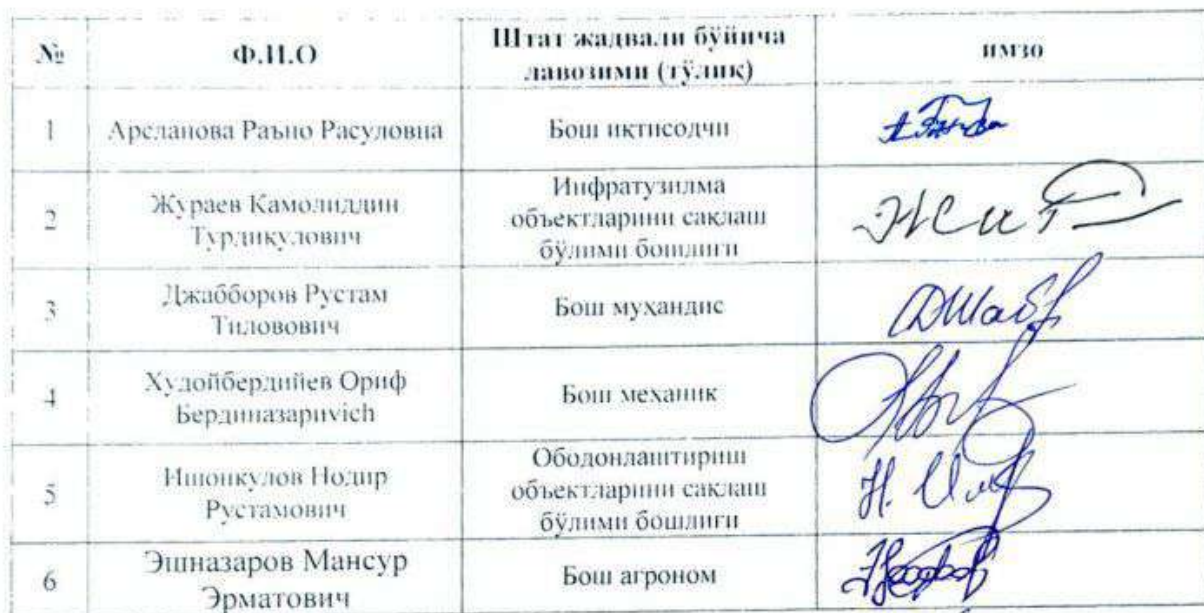 №
Ф.И.О
Штат жадвали бўйича
лавозими (тўлиқ)
имзо
1
Арсланова Раъно Расуловна
Бош иқтисодчи
2
Жураев Камолиддин
Турдиқулович
Инфратузилма
объектларини сақлаш
бўлими бошлиғи
3
Джабборов Рустам
Тиловович
Бош муҳандис
4
Худойбердийев Ориф
Бердиназариvich
Бош механик
5
Ишонкулов Нодир
Рустамович
Ободонлаштириш
объектларини сақлаш
бўлими бошлиғи
6
Эшназаров Мансур
Эрматович
Бош агроном